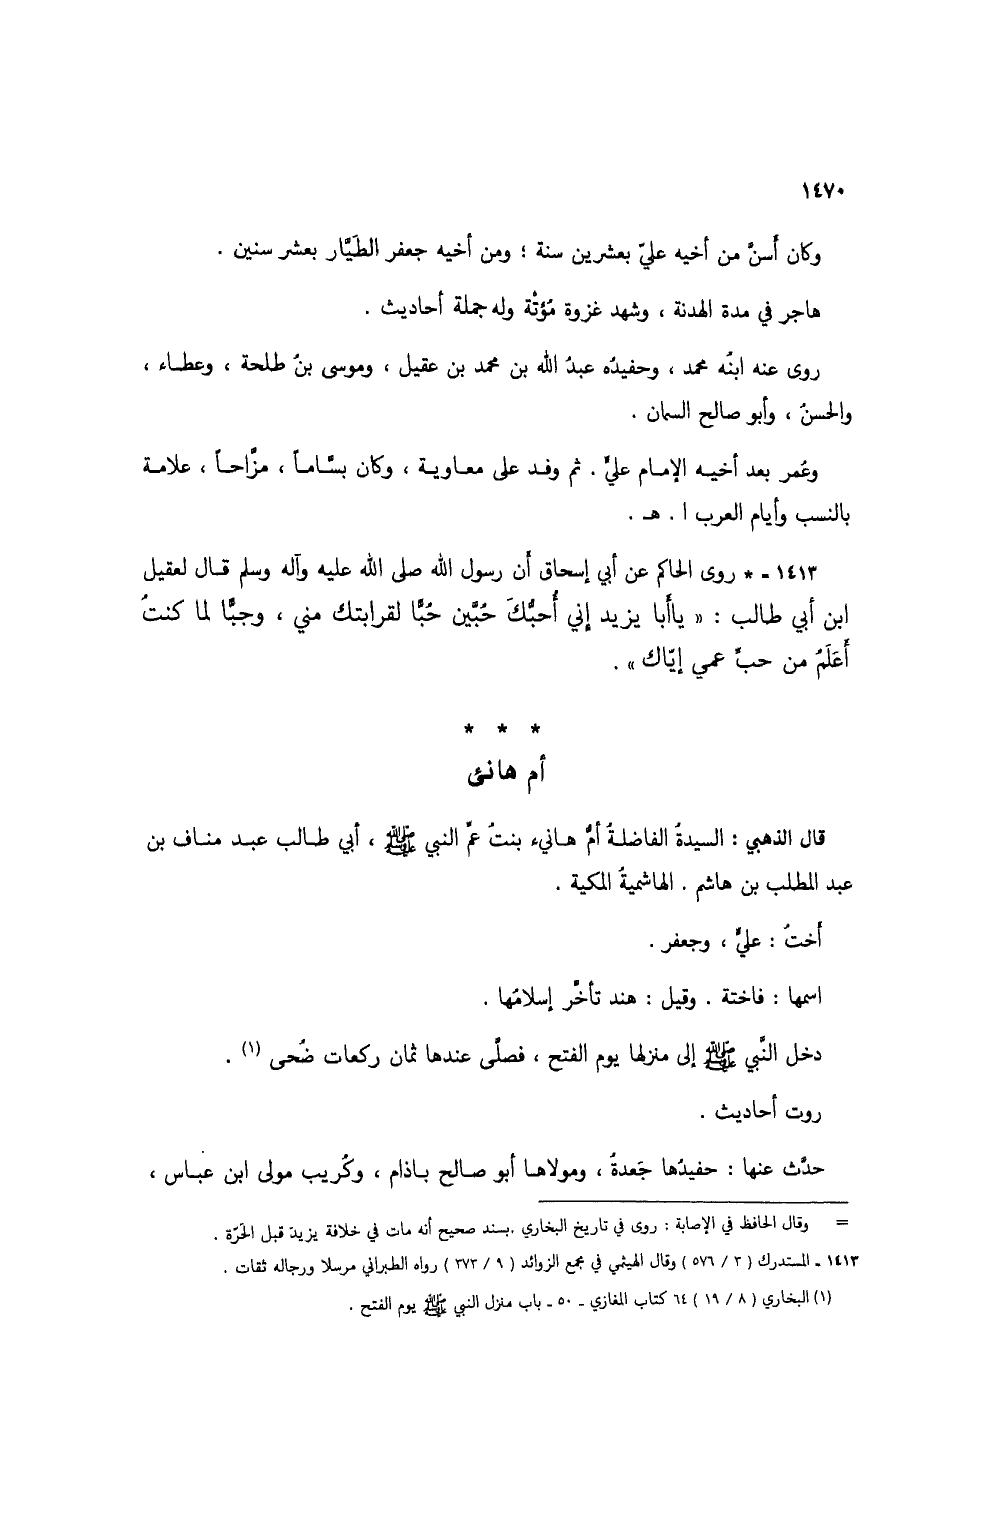 ١٤٧٠
وكان أَسنَّ من أخيه عليّ بعشرين سنة ؛ ومن أخيه جعفر الطَيَّار بعشر سنين .
هاجر في مدة الهدنة ، وشهد غزوة مُؤتْة وله جملة أحاديث .
روى عنه ابنُه محمد ، وحفيدُه عبدُ الله بن محمد بن عقيل ، وموسى بنُ طلحة ، وعطاء ،
والحسنُ ، وأبو صالح السمان .
وعُمر بعد أخيه الإمام عليٍّ . ثم وفد على معاوية ، وكان بسَّاماً ، مزَّاحاً ، علامة
بالنسب وأيام العرب ا . هـ .
١٤١٣ - * روى الحاكم عن أبي إسحاق أن رسول الله صلى الله عليه وآله وسلم قال لعقيل
ابن أبي طالب : « ياأَبا يزيد إني أُحبُّكَ حُبَّين حُبًّا لقرابتك مني ، وحبًّا لما كنتُ
أَعَلَمُ من حبِّ عمي إيّاك » .
* * *
أم هانئ
قال الذهبي : السيدةُ الفاضلةُ أمُّ هانيء بنتُ عمِّ النبي ﷺ ، أبي طالب عبد مناف بن
عبد المطلب بن هاشم . الهاشميةُ المكية .
أَختُ : عليٍّ ، وجعفر .
اسمها : فاختة . وقيل : هند تأخَّر إسلامُها .
دخل النَّبي ﷺ إلى منزلها يوم الفتح ، فصلَّى عندها ثمان ركعات ضُحى (١) .
روت أحاديث .
حدَّث عنها : حفيدُها جَعدةُ ، ومولاها أبو صالح باذام ، وكُريب مولى ابن عباس ،
= وقال الحافظ في الإصابة : روى في تاريخ البخاري .بسند صحيح أنه مات في خلافة يزيدَ قبل الحَرّة .
١٤١٣ - المستدرك ( ٣ / ٥٧٦ ) وقال الهيثمي في مجمع الزوائد ( ٩ / ٣٧٣ ) رواه الطبراني مرسلا ورجاله ثقات .
(١) البخاري ( ٨ / ١٩ ) ٦٤ كتاب المغازي - ٥٠ - باب منزل النبي ﷺ يوم الفتح .